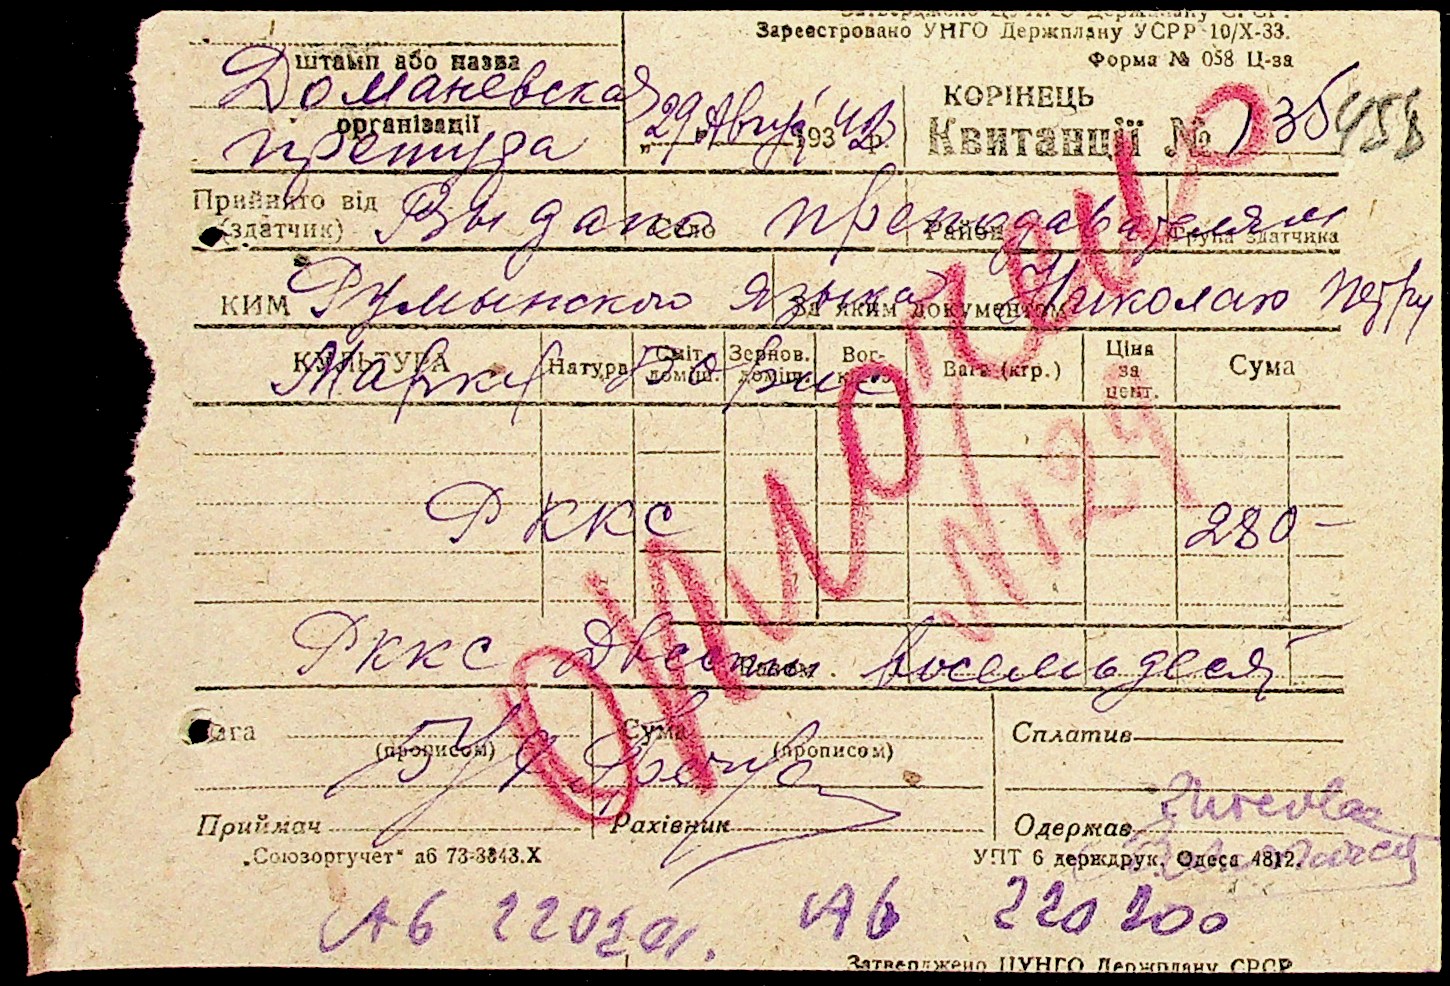 Затверджено ЦУНГО Держплану СРСР.
Зареєстровано УНГО Держплану УСРР 10/X-33.
Форма № 058 Ц-за
штамп або назва
Доманевская
організації
претура
„29" Август 193 42 р.
КОРІНЕЦЬ
Квитанції № 136
458
Прийнято від
(здатчик)
Село
Район
Група здатчика
Выдано преподавателям
КИМ
За яким документом
Румынского языка Николаю Петру
КУЛЬТУРА
Натура
Сміт. доміш.
Зернов. доміш.
Вог-
Вага (кгр.)
Ціна за цент.
Сума
РККС
280 –
Разом
РККС Двести Восемьдесят
Вага
(прописом)
Сума
(прописом)
Сплатив
Бух
Приймач
Рахівник
Одержав
„Союзоргучет" а6 73-3343.X
УПТ 6 держдрук. Одеса 4812.
Аб 220201. Аб 220200
Затверджено ЦУНГО Держплану СРСР
Оплочено
N 129